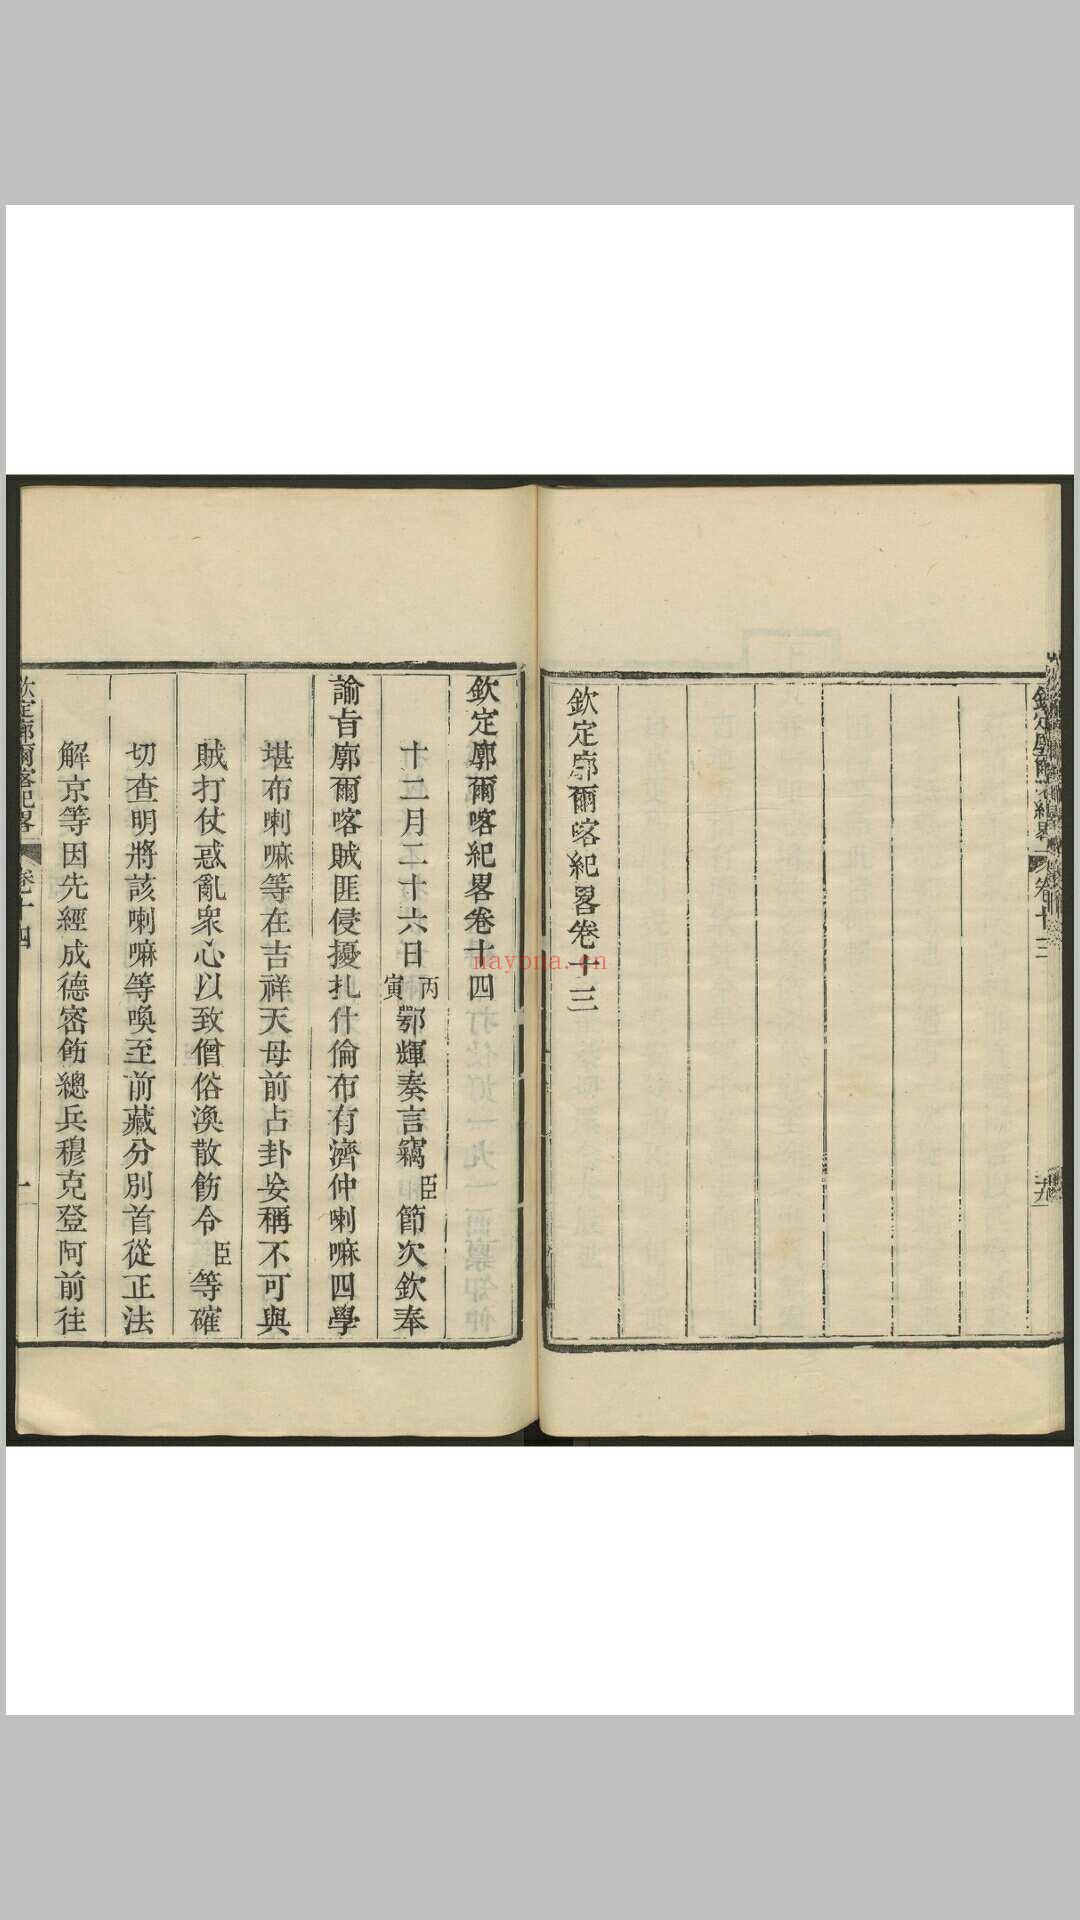 欽定廓爾喀紀畧 卷十三
欽定廓爾喀紀畧卷十三
欽定廓爾喀紀畧卷十四
十二月二十六日丙寅鄂輝奏言竊臣節次欽奉
諭旨廓爾喀賊匪侵擾扎什倫布有濟仲喇嘛四學
堪布喇嘛等在吉祥天母前占卦妄稱不可與
賊打仗惑亂衆心以致僧俗渙散飭令臣等確
切查明將該喇嘛等喚至前藏分別首從正法
解京等因先經成德密飭總兵穆克登阿前往
欽定廓爾喀紀畧 卷十四 一
nayona.cn